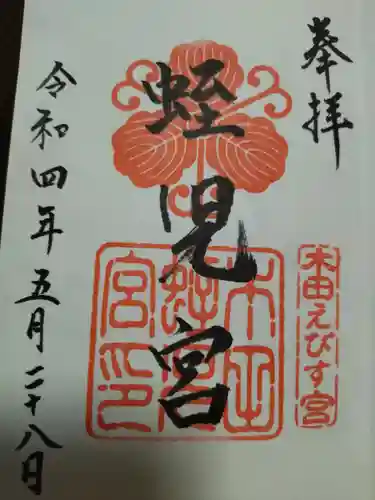 奉拝
木田えびす宮
蛭児宮
木田
蛭児
宮印
令和四年五月二十八日